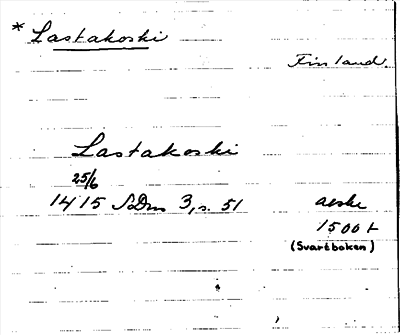 * Lastakoski
Finland
Lastakoski
25/6
1415 SDm 3, s. 51 aeske
1500 t
(Svartboken)